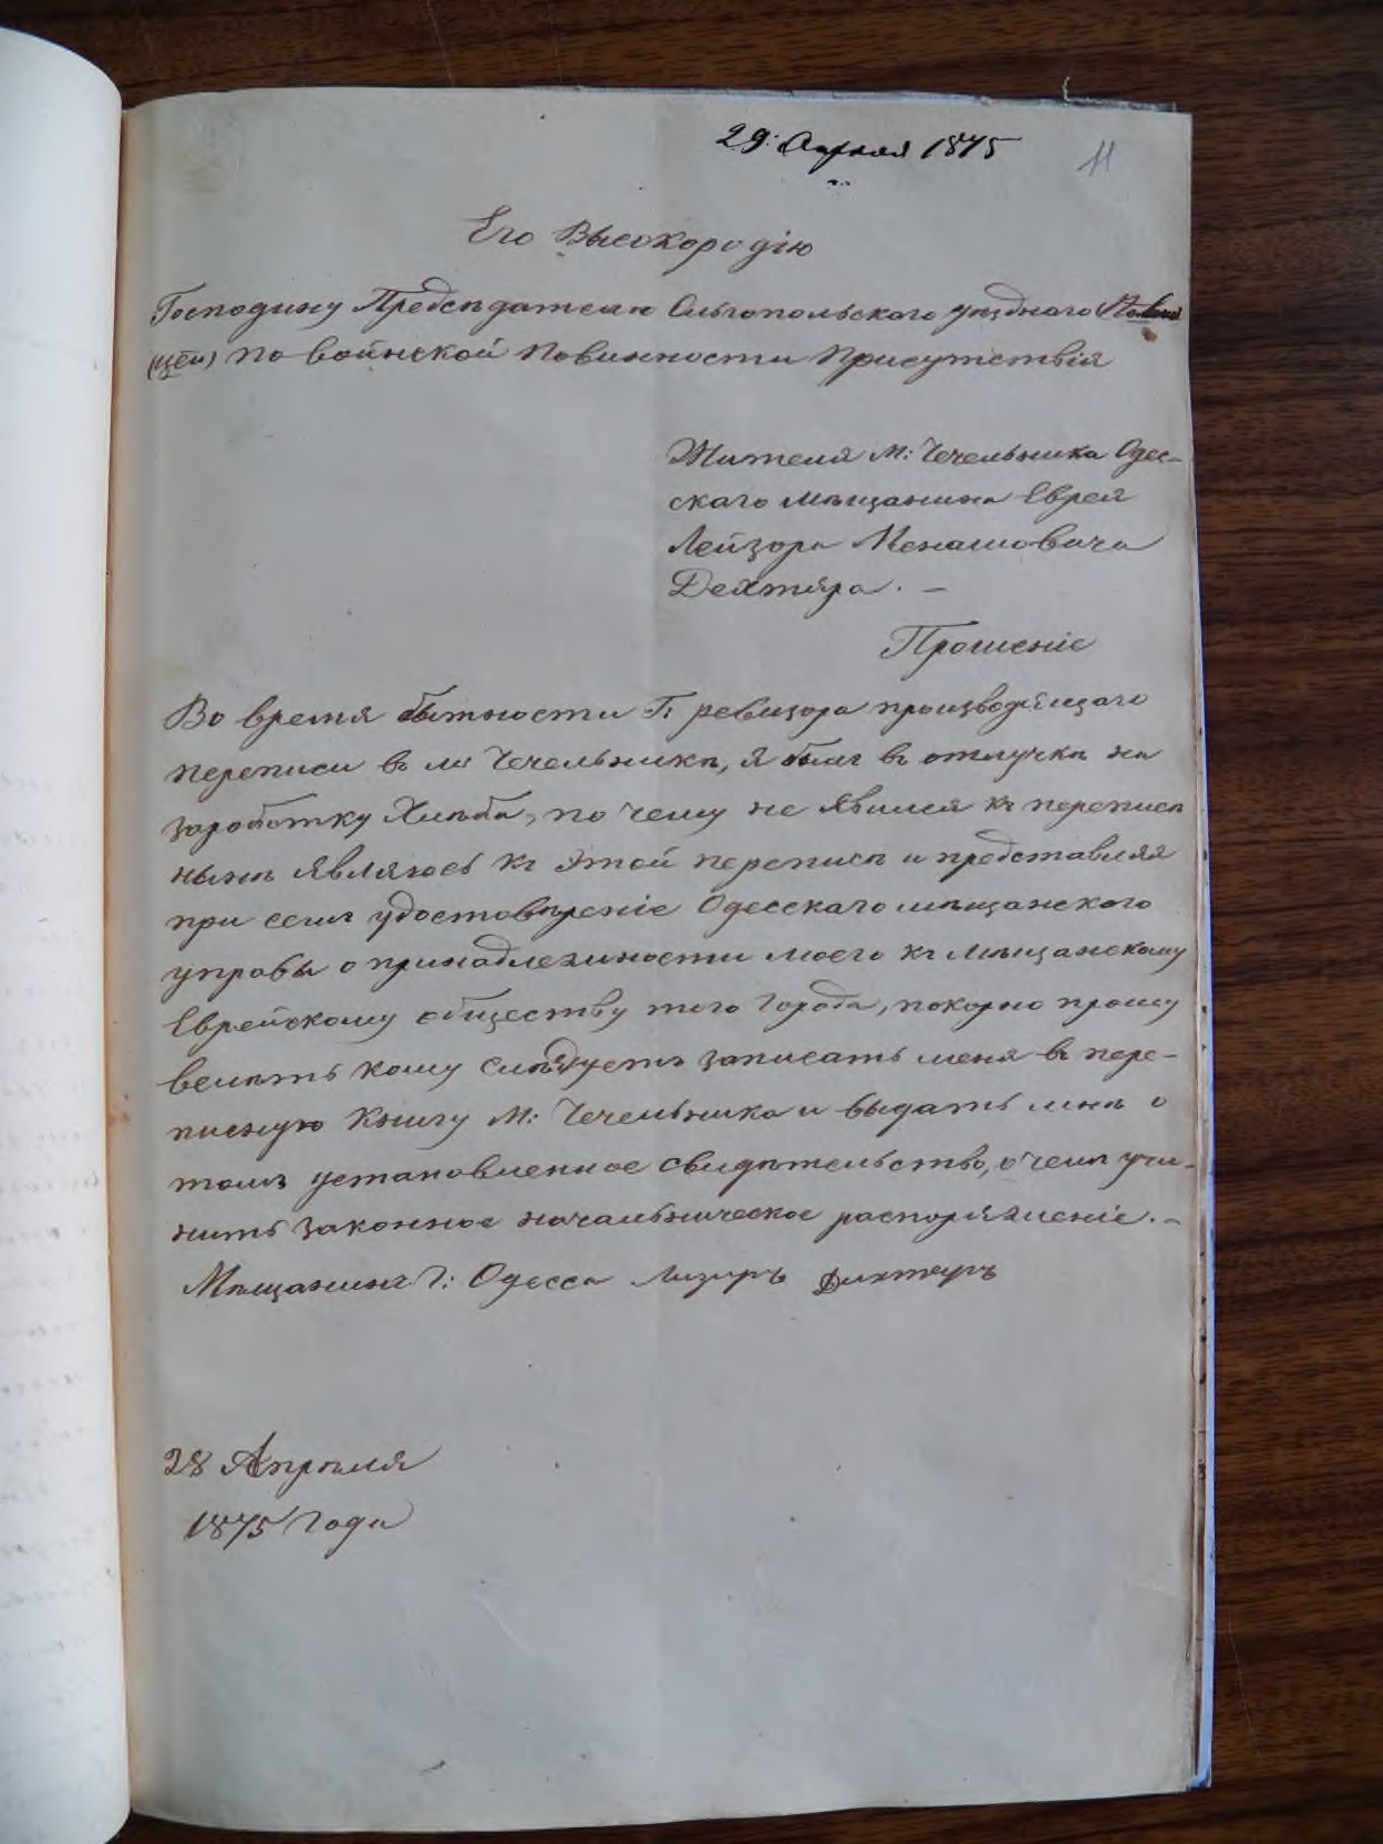 29: Апреля 1875
11
Его Высокородію
Господину Предсѣдателю Ольгопольского уѣзднаго
(цеи) по воинской Повинности Присутствія
Жителя М: Чечельника Одес-
скаго мѣщанина Еврея
Лейзора Менашовича
Дехтяра. —
Прошеніе
Во время бытности Г: ревизора производящаго
переписи въ м: Чечельникѣ, я былъ въ отлучкѣ на
заработку Хлѣба, по чему не явился къ переписѣ
нынѣ являюсь къ этой переписѣ и представляя
при семъ удостовѣреніе Одесскаго мѣщанского
управы о принадлежности моего къ мѣщанскому
Еврейскому обществу того города, покорно прошу
велѣть кому слѣдуетъ записать меня въ пере-
писную Книгу М: Чечельника и выдать мнѣ о
томъ установленное свидѣтельство, о чемъ учи-
нить законное начальническое распоряженіе. —
Мѣщанинъ Г: Одесса Лизеръ Дихтяръ
28 Апрѣля
1875 Года